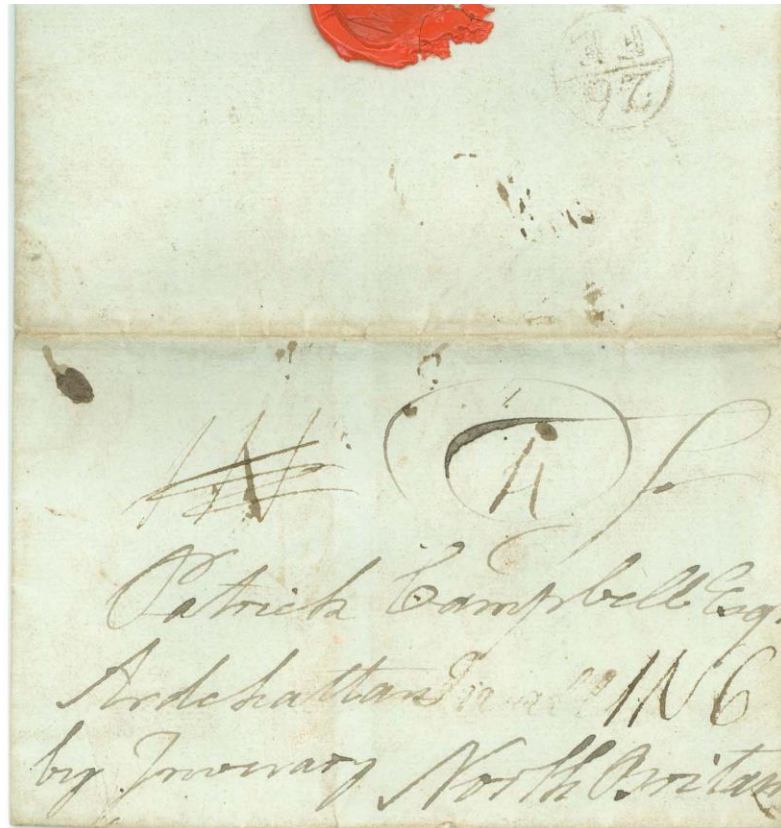 FE
26
4
To
Patrick Campbell Esqr
Ardchattan In all 1N6
by Inverary North Britain